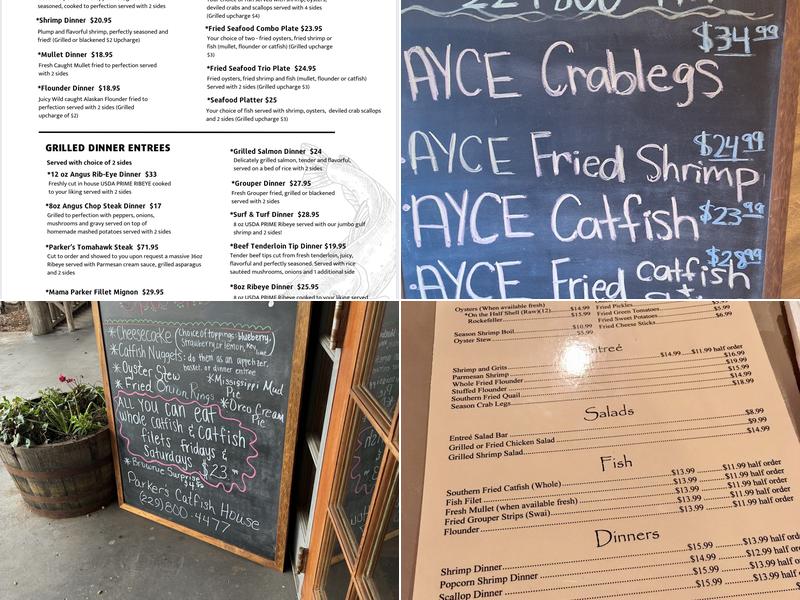 seasoned, cooked to perfection served with 2 sides
*Shrimp Dinner $20.95
Plump and flavorful shrimp, perfectly seasoned and
fried! (Grilled or blackened $2 Upcharge)
*Mullet Dinner $18.95
Fresh Caught Mullet fried to perfection served
with 2 sides
*Flounder Dinner $18.95
Juicy Wild caught Alaskan Flounder fried to
perfection served with 2 sides (Grilled
upcharge of $2)
deviled crab and scallops served with 4 sides
(Grilled upcharge $4)
*Fried Seafood Combo Plate $23.95
Your choice of two - fried oysters, fried shrimp or
fish (mullet, flounder or catfish) (Grilled upcharge
$3)
*Fried Seafood Trio Plate $24.95
Fried oysters, fried shrimp and fish (mullet, flounder or catfish)
Served with 2 sides (Grilled upcharge $3)
*Seafood Platter $25
Your choice of fish served with shrimp, oysters, deviled crab scallops
and 2 sides (Grilled upcharge $3)
GRILLED DINNER ENTREES
Served with choice of 2 sides
*12 oz Angus Rib-Eye Dinner $33
Freshly cut in house USDA PRIME RIBEYE cooked
to your liking served with 2 sides
*8oz Angus Chop Steak Dinner $17
Grilled to perfection with peppers, onions,
mushrooms and gravy served on top of
homemade mashed potatoes served with 2 sides
*Parker's Tomahawk Steak $71.95
Cut to order and showed to you upon request a massive 36oz
Ribeye served with Parmesan cream sauce, grilled asparagus
and 2 sides
*Mama Parker Fillet Mignon $29.95
*Grilled Salmon Dinner $24
Delicately grilled salmon, tender and flavorful,
served on a bed of rice with 2 sides
*Grouper Dinner $27.95
Fresh Grouper fried, grilled or blackened
served with 2 sides
*Surf & Turf Dinner $28.95
8 oz USDA PRIME Ribeye served with our jumbo gulf
shrimp and 2 sides!
*Beef Tenderloin Tip Dinner $19.95
Tender beef tips cut from fresh tenderloin, juicy,
flavorful and perfectly seasoned. Served with rice
sautéed mushrooms, onions and 1 additional side
*8oz Ribeye Dinner $25.95
8 oz USDA PRIME Ribeye cooked to your liking served
AYCE Crablegs $34.99
AYCE Fried Shrimp $24.99
AYCE Catfish $23.99
AYCE Fried catfish $28.99
*Cheesecake (Choice of toppings: blueberry,
Strawberry or lemon, Key lime
*Catfish Nuggets: do them as an appetizer,
basket, or dinner entree
*Oyster Stew
*Mississippi Mud
Pie
*Fried Onion Rings
*Oreo Cream
Pie
ALL you can eat
whole catfish & catfish
filets fridays &
Saturdays $23.99
*Brownie Surprise
Parker's Catfish House
(229)800-4477
Oysters (When available fresh)
*On the Half Shell (Raw)(12) $14.99
Rockefeller $15.99
Season Shrimp Boil $10.99
Oyster Stew $5.99
Fried Pickles
Fried Green Tomatoes $5.99
Fried Sweet Potatoes $6.99
Fried Cheese Sticks
Entreé
Shrimp and Grits $14.99 $11.99 half order
Parmesan Shrimp $16.99
Whole Fried Flounder $19.99
Stuffed Flounder $15.99
Southern Fried Quail $14.99
Season Crab Legs $18.99
Salads
Entreé Salad Bar $8.99
Grilled or Fried Chicken Salad $9.99
Grilled Shrimp Salad $14.99
Fish
Southern Fried Catfish (Whole) $13.99 $11.99 half order
Fish Filet $13.99 $11.99 half order
Fresh Mullet (when available fresh) $13.99 $11.99 half order
Fried Grouper Strips (Swai) $13.99 $11.99 half order
Flounder $13.99 $11.99 half order
Dinners
Shrimp Dinner $15.99 $13.99 half
Popcorn Shrimp Dinner $14.99 $12.99 half or
Scallop Dinner $15.99 $13.99 half o
$15.99 $13.99 half